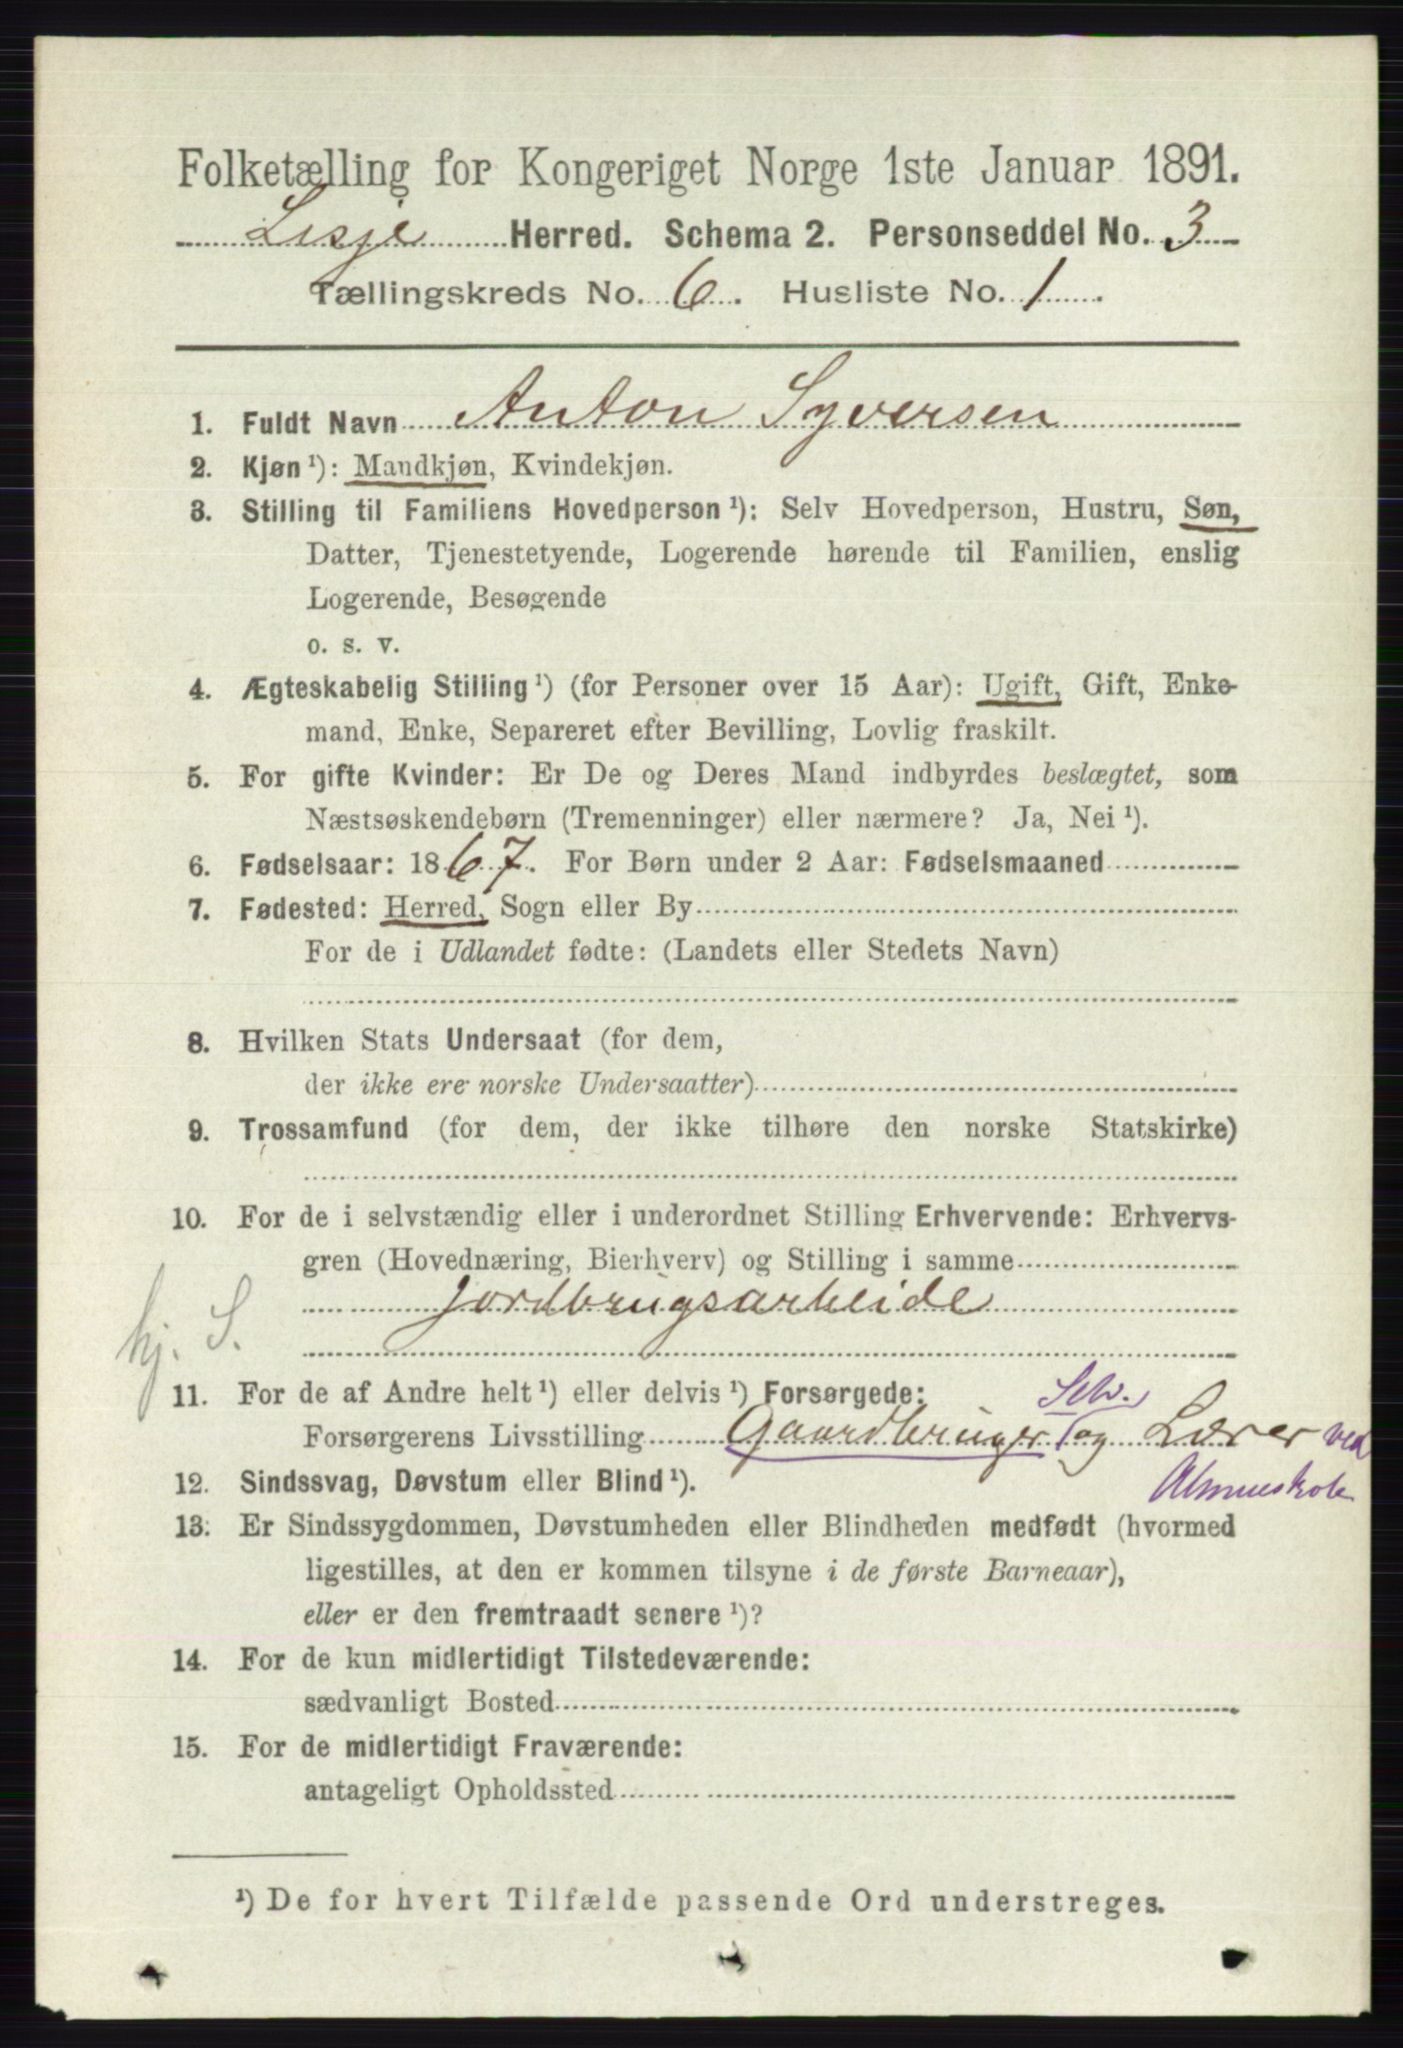 Folketælling for Kongeriget Norge 1ste Januar 1891.
Lesje Herred. Schema 2. Personseddel No. 3
Tællingskreds No. 6. Husliste No. 1.
1. Fuldt Navn Anton Syversen
2. Kjøn ¹): Mandkjøn, Kvindekjøn.
3. Stilling til Familiens Hovedperson ¹): Selv Hovedperson, Hustru, Søn,
Datter, Tjenestetyende, Logerende hørende til Familien, enslig
Logerende, Besøgende
o. s. v.
4. Ægteskabelig Stilling ¹) (for Personer over 15 Aar): Ugift, Gift, Enke-
mand, Enke, Separeret efter Bevilling, Lovlig fraskilt.
5. For gifte Kvinder: Er De og Deres Mand indbyrdes beslægtet, som
Næstsøskendebørn (Tremenninger) eller nærmere? Ja, Nei ¹).
6. Fødselsaar: 1867. For Børn under 2 Aar: Fødselsmaaned
7. Fødested: Herred, Sogn eller By
For de i Udlandet fødte: (Landets eller Stedets Navn)
8. Hvilken Stats Undersaat (for dem,
der ikke ere norske Undersaatter)
9. Trossamfund (for dem, der ikke tilhøre den norske Statskirke)
10. For de i selvstændig eller i underordnet Stilling Erhvervende: Erhvervs-
gren (Hovednæring, Bierhverv) og Stilling i samme
Jordbrugsarbeide
hj. S.
11. For de af Andre helt ¹) eller delvis ¹) Forsørgede:
Selv.
Forsørgerens Livsstilling Gaardbruger og Lærer ved
Almueskole
12. Sindssvag, Døvstum eller Blind ¹).
13. Er Sindssygdommen, Døvstumheden eller Blindheden medfødt (hvormed
ligestilles, at den er kommen tilsyne i de første Barneaar),
eller er den fremtraadt senere ¹)?
14. For de kun midlertidigt Tilstedeværende:
sædvanligt Bosted
15. For de midlertidigt Fraværende:
antageligt Opholdssted
¹) De for hvert Tilfælde passende Ord understreges.